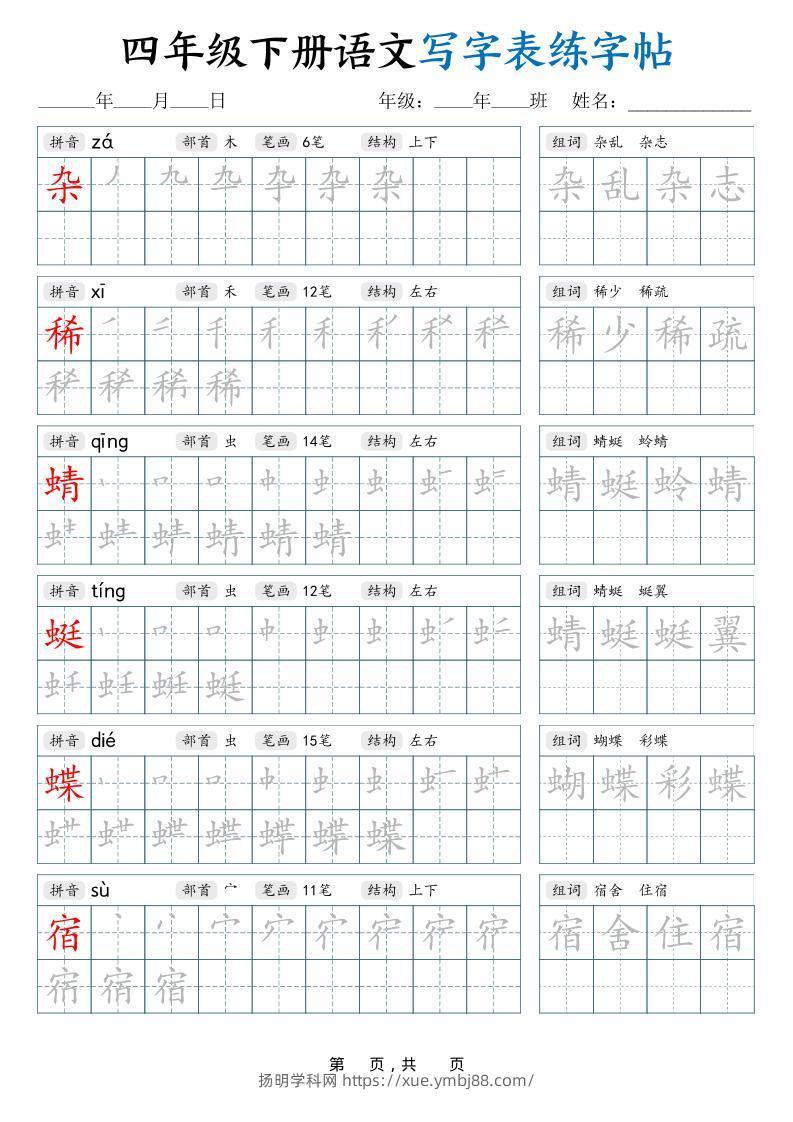 四年级下册语文写字表练字帖
______年____月____日 年级：____年____班 姓名：____________
拼音 zá 部首 木 笔画 6笔 结构 上下 组词 杂乱 杂志
杂 杂 杂 乱 杂 志
拼音 xī 部首 禾 笔画 12笔 结构 左右 组词 稀少 稀疏
稀 稀 少 稀 疏
稀
拼音 qīng 部首 虫 笔画 14笔 结构 左右 组词 蜻蜓 蛉蜻
蜻 蜻 蜓 蛉 蜻
蜻
拼音 tíng 部首 虫 笔画 12笔 结构 左右 组词 蜻蜓 蜓翼
蜓 蜻 蜓 蜓 翼
蜓
拼音 dié 部首 虫 笔画 15笔 结构 左右 组词 蝴蝶 彩蝶
蝶 蝴 蝶 彩 蝶
蝶
拼音 sù 部首 宀 笔画 11笔 结构 上下 组词 宿舍 住宿
宿 宿 舍 住 宿
宿
第 页，共 页
扬明学科网 https://xue.ymbj88.com/